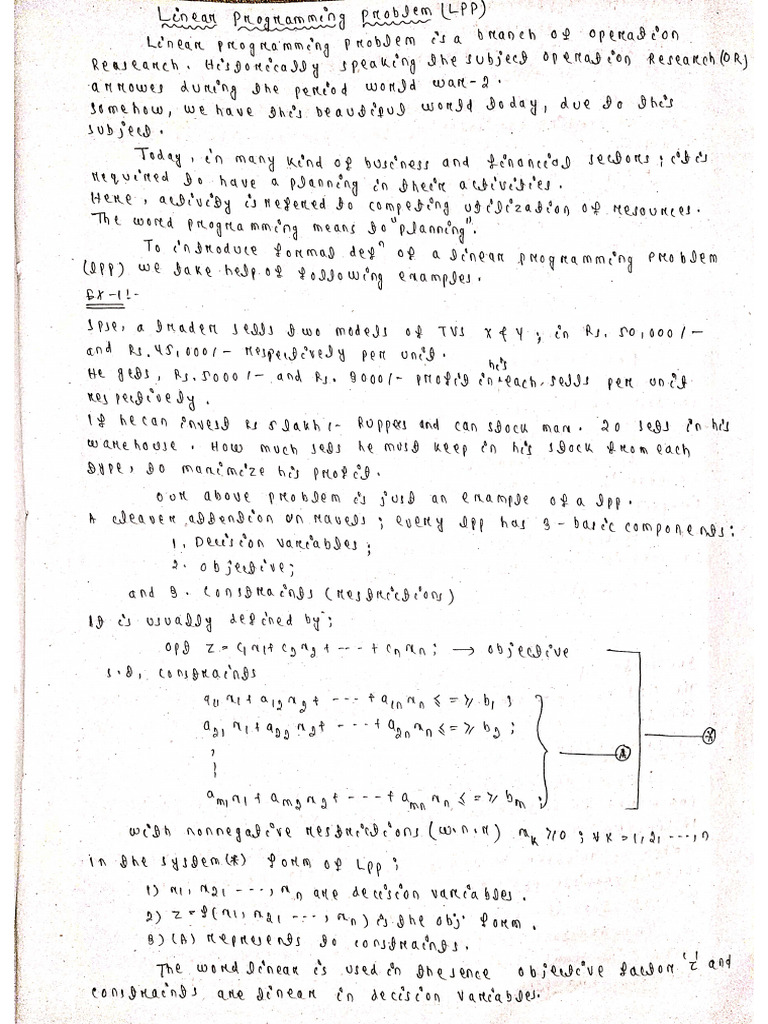 Linear Programming Problem (LPP)
Linear programming problem is a branch of operation
Reasearch. Historically speaking the subject operation Research (OR)
arrowes during the period world war-2.
Somehow, we have this beautiful world today, due to this
subject.
Today, in many kind of business and financial sectors; it is
required to have a planning in their activities.
Here, activity is refered to competing utilization of resources.
The word programming means to "planning".
To introduce formal defⁿ of a linear programming problem
(lpp) we take help of following examples.
EX-1:-
Spse, a trader sells two models of TVs X & Y; in Rs. 50,000/-
and Rs. 45,000/- respectively per unit.
He gets, Rs. 5000/- and Rs. 3000/- profit in his each sells per unit
respectively.
If he can invest Rs 5 lakh/- Ruppers and can stock max. 20 sets in his
warehouse. How much sets he must keep in his stock from each
type, to maximize his profit.
Our above problem is just an example of a lpp.
A cleaver attention on ravels; every lpp has 3-basic components:
1. Decision variables;
2. objective;
and 3. Constraints (restrictions)
It is usually defined by;
opt z = c₁x₁ + c₂x₂ + --- + cₙxₙ; → objective
s.t, constraints
a₁₁x₁ + a₁₂x₂ + --- + a₁ₙxₙ ≤ = ≥ b₁;
a₂₁x₁ + a₂₂x₂ + --- + a₂ₙxₙ ≤ = ≥ b₂;
(A) (*)
aₘ₁x₁ + aₘ₂x₂ + --- + aₘₙxₙ ≤ = ≥ bₘ;
with nonnegative restrictions (w.n.r) xₖ ≥ 0; ∀k = 1, 2, ---, n
in the system (*) form of Lpp;
1) x₁, x₂, ---, xₙ are decision variables.
2) z = f(x₁, x₂, ---, xₙ) is the obj. form.
3) (A) represents to constraints.
The word linear is used in the sence objective factor 'z' and
constraints are linear in decision variables.